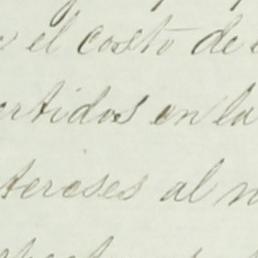 el costo de
ertidos en la
tereses al